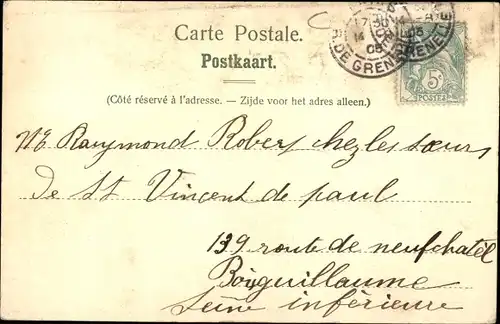 Carte Postale.
Postkaart.
(Côté réservé à l'adresse. — Zijde voor het adres alleen.)
R. DE GRENELLE
08
5c
POSTES
Mr Raymond Robert chez les sœurs
de St Vincent de paul
139 route de neufchatel
Boisguillaume
Seine inférieure